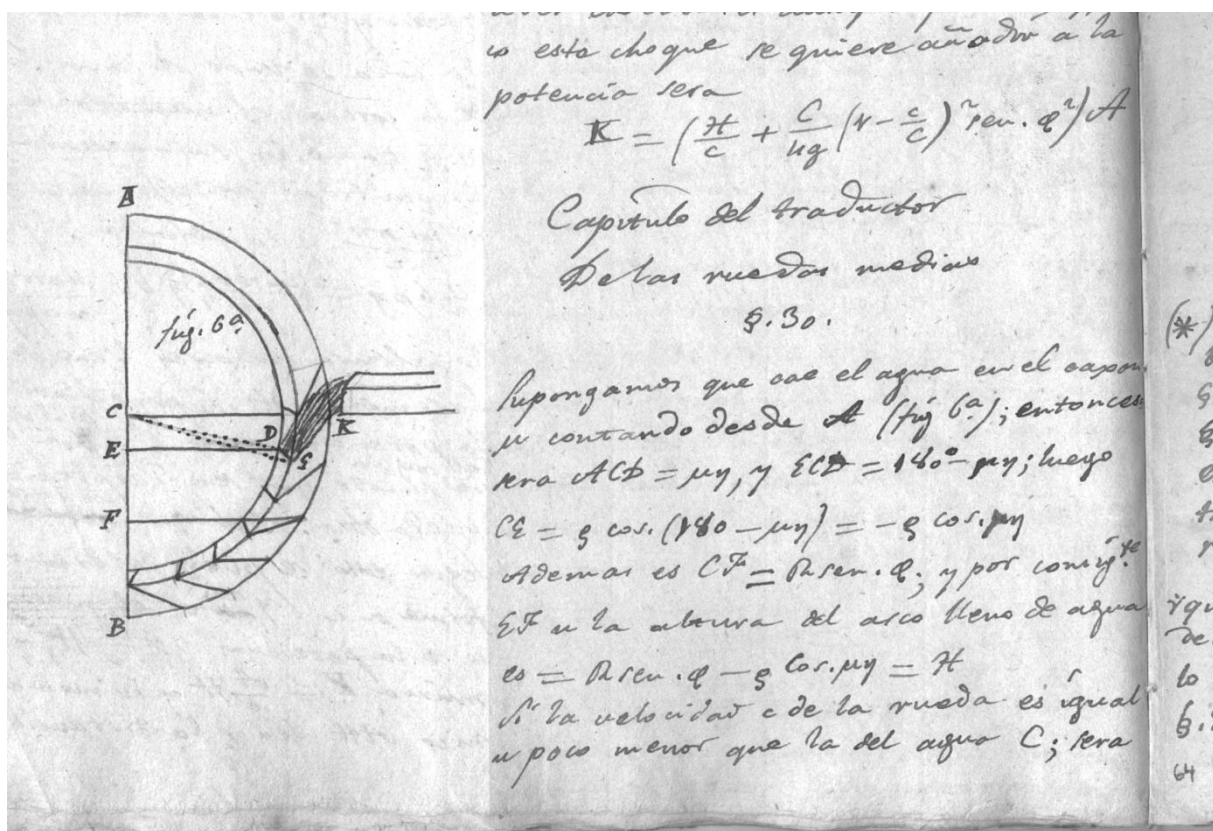 o esto choque se quiere añadir a la
potencia sera
K = (H/c + C/4g (γ - c/C)² sen. φ²) A
Capitulo del traductor
De las ruedas medias
§. 30.
Supongamos que cae el agua en el caxon
μ contando desde A (fig 6ª); entonces
sera ACD = μη, y ECD = 180° - μη; luego
CE = ρ cos. (180 - μη) = -ρ cos. μη
Ademas es CF = R sen. φ; y por consig.te
EF u la altura del arco lleno de agua
es = R sen. φ - ρ Cos. μη = H
Si la velocidad c de la rueda es igual
u poco menor que la del agua C; sera
A
fig. 6ª
C
D
K
E
F
B
(*)
de
lo
64